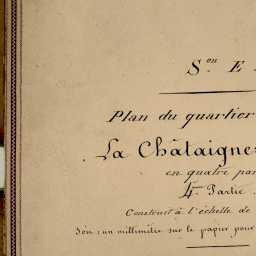 Son E
Plan du quartier
La Châtaigne
en quatre par
4e Partie
Construit à l'échelle de
Son : un millimètre sur le papier pour